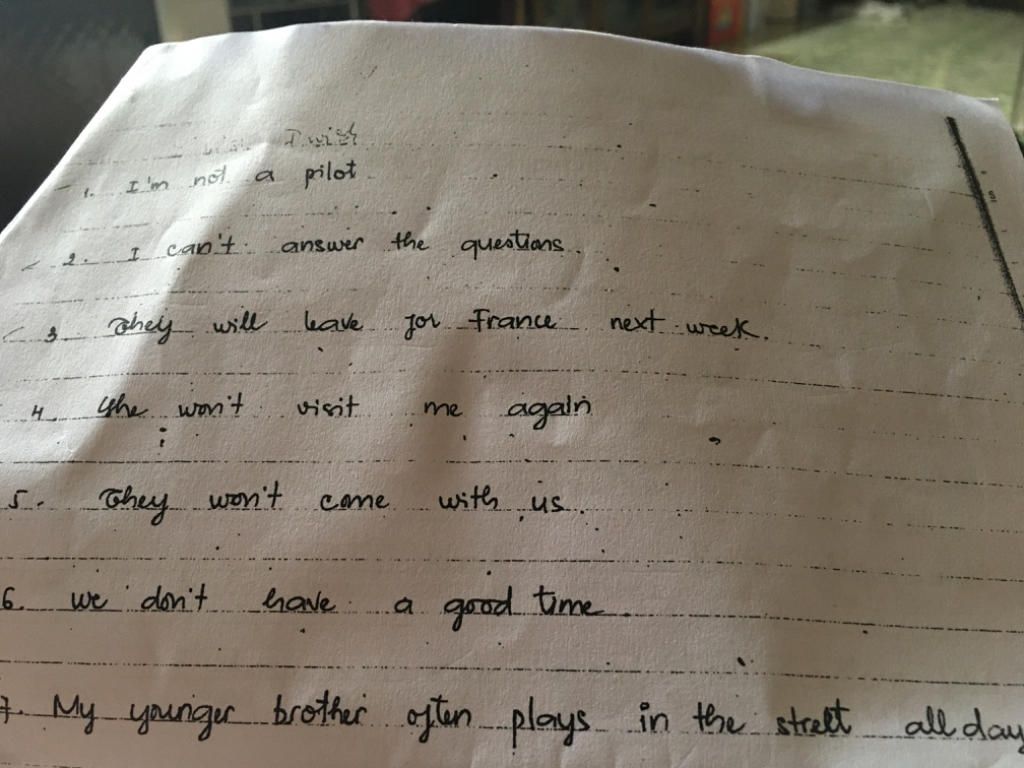 I wish
1. I'm not a pilot
2. I can't answer the questions.
3. They will leave for France next week.
4. She won't visit me again
5. They won't come with us.
6. we don't have a good time
7. My younger brother often plays in the street all day